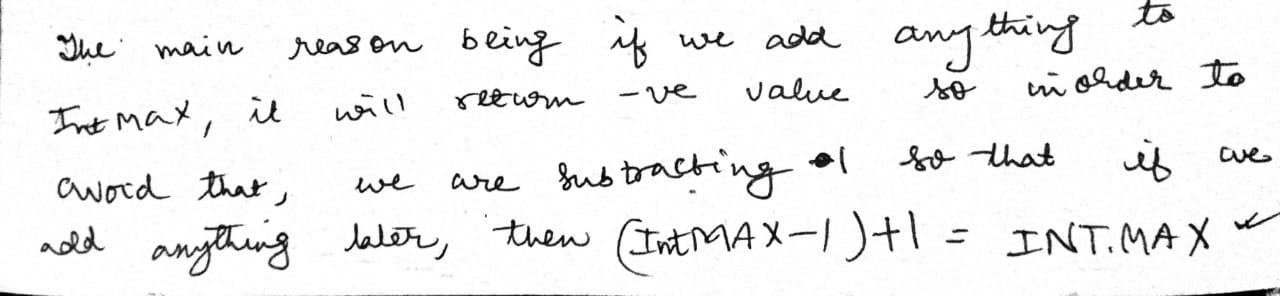 The main reason being if we add anything to
Int MAX, it will return -ve value so inorder to
avoid that, we are subtracting 1 so that if we
add anything later, then (IntMAX-1)+1 = INT.MAX ✓